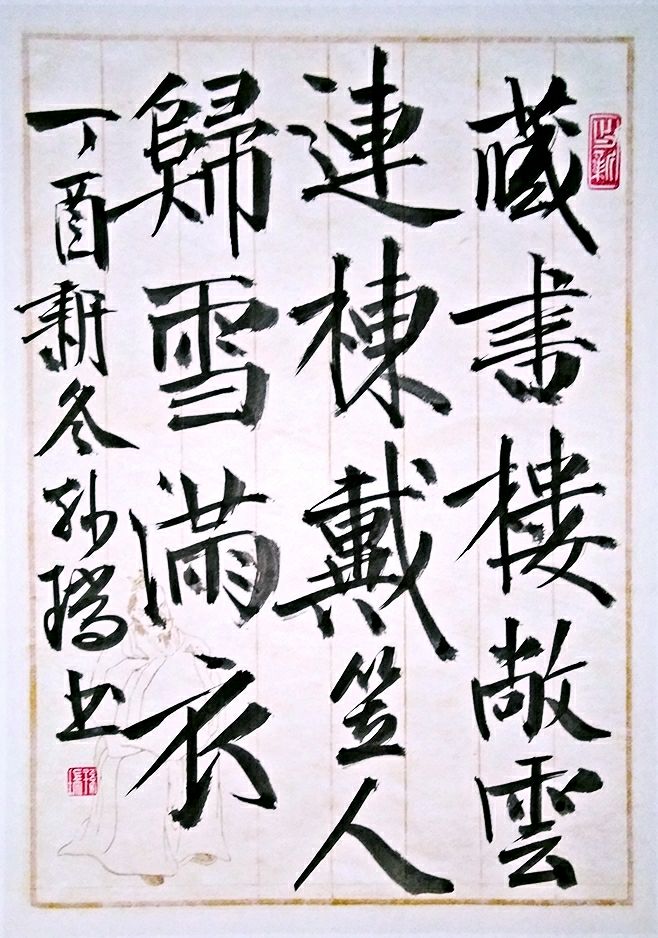 藏書樓敞雲
連棟戴笠人
歸雪滿衣
丁酉新冬孙瑞书